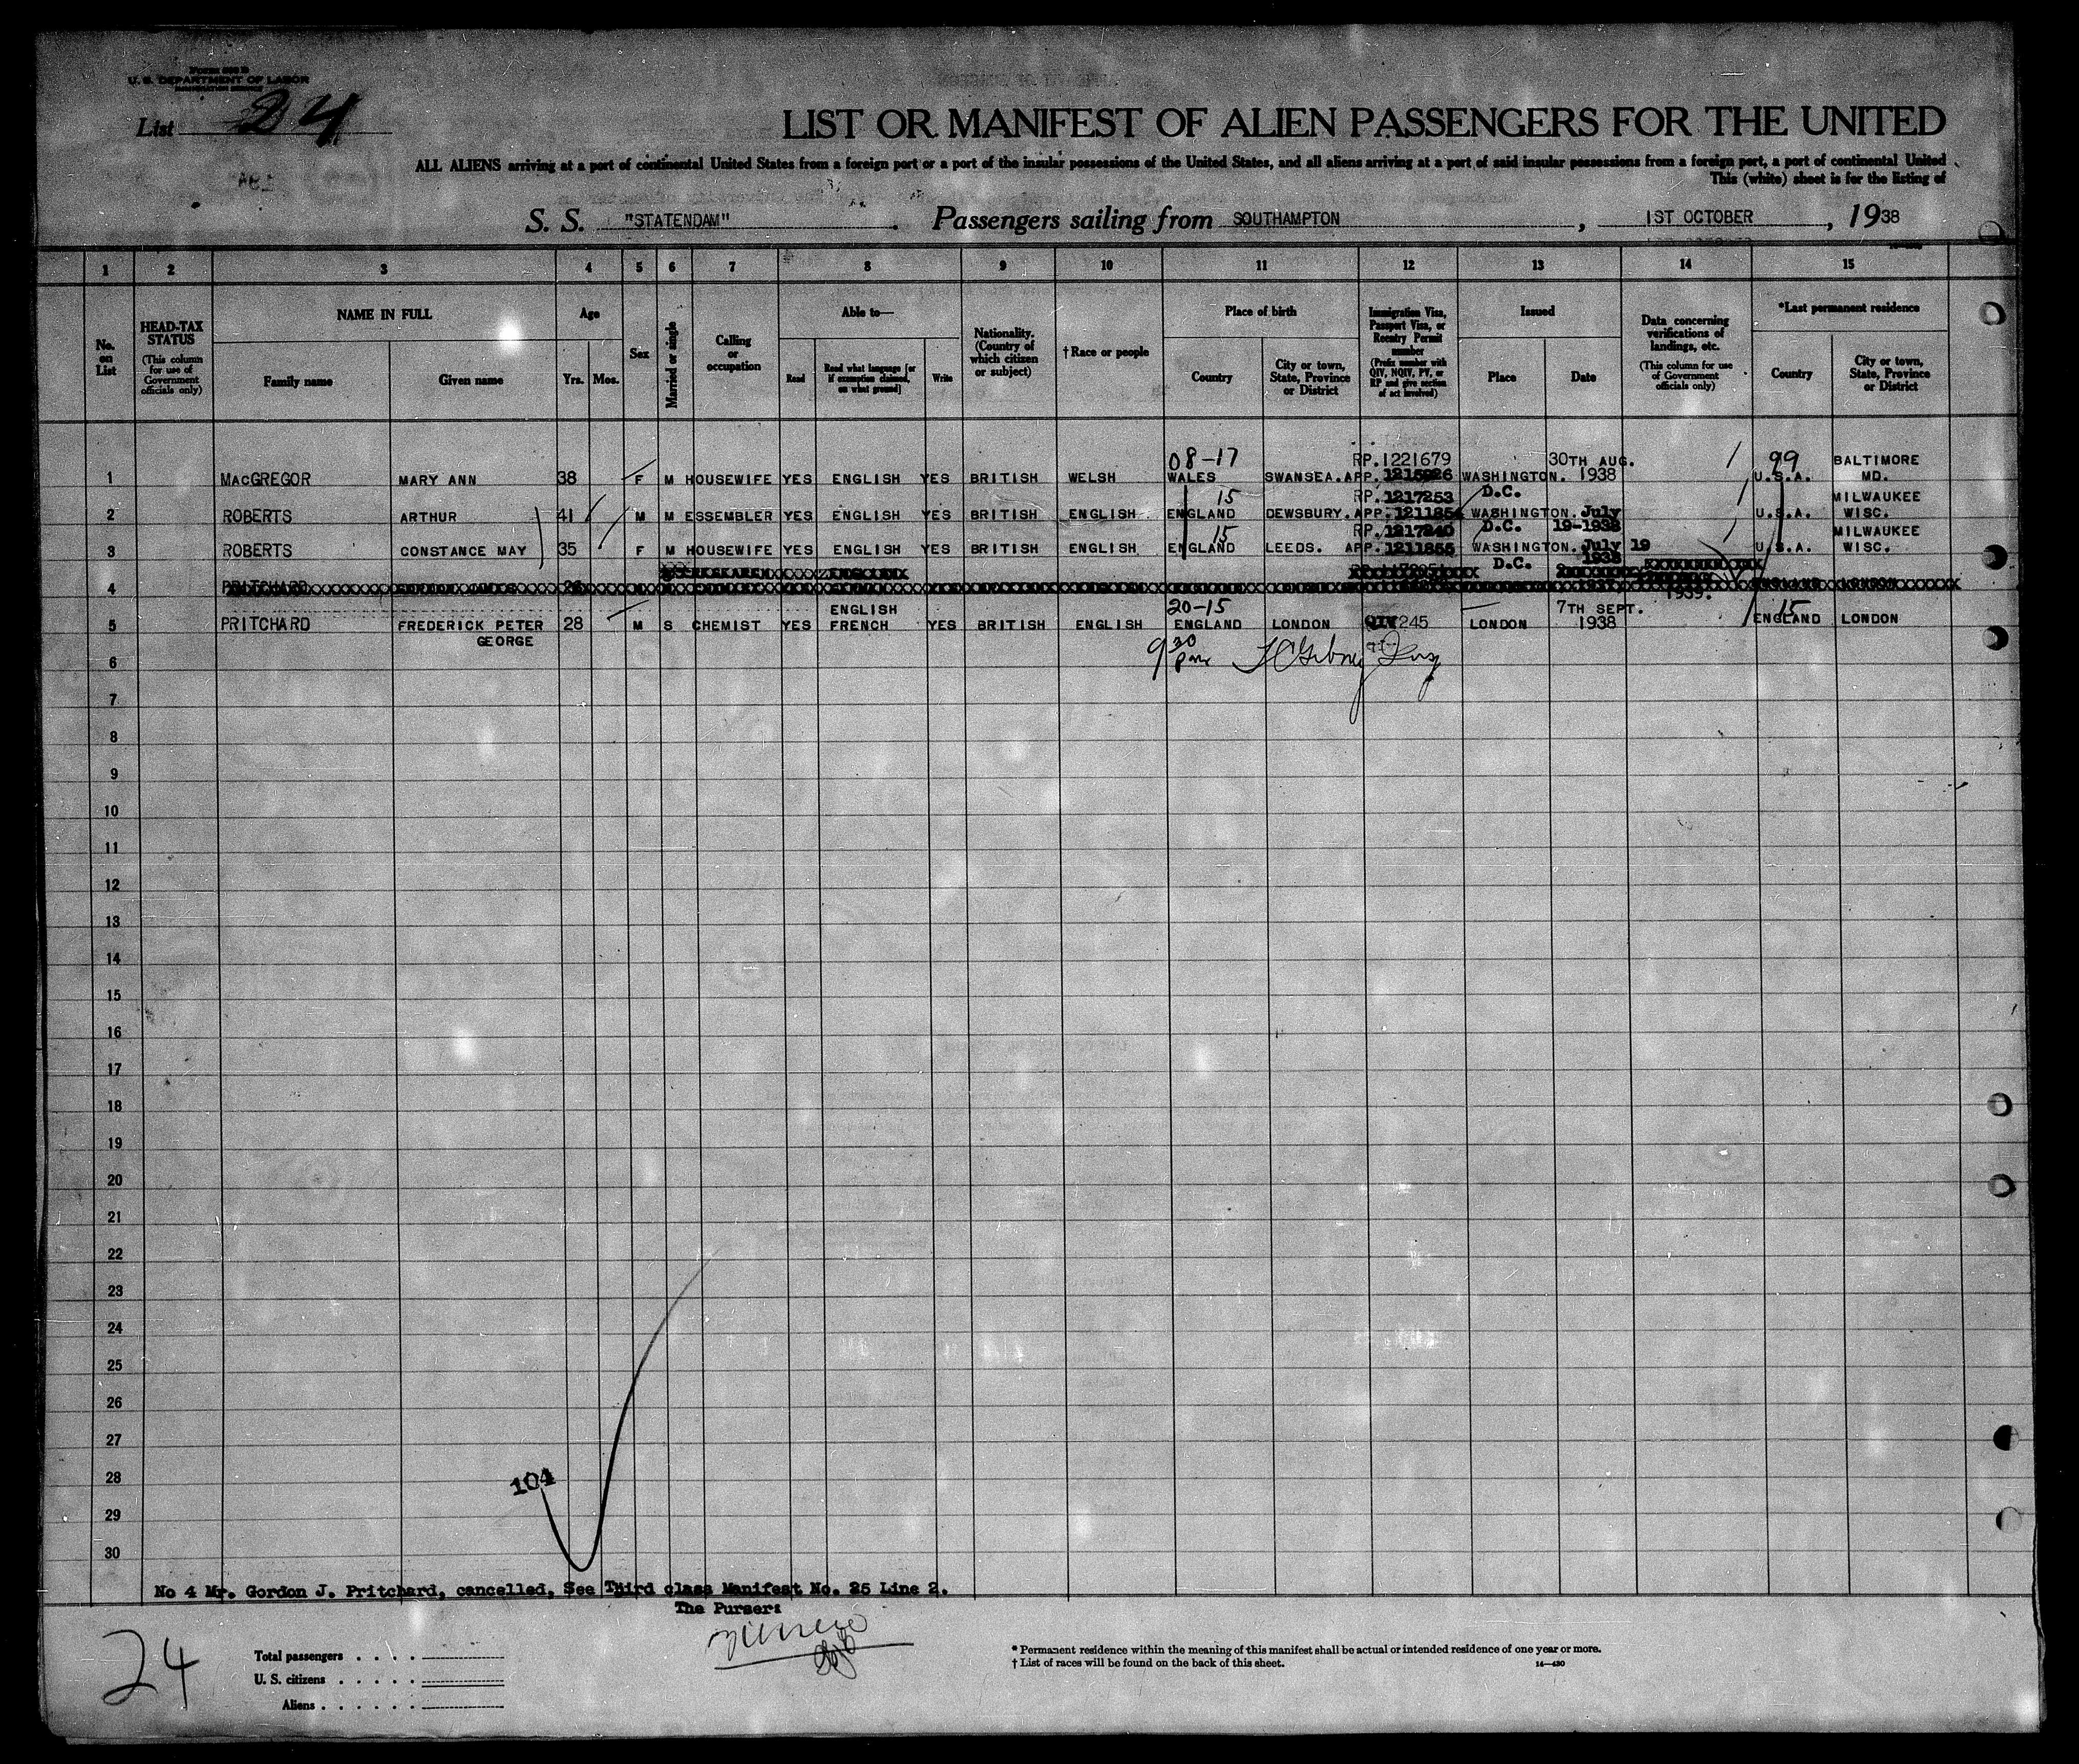 U. S. DEPARTMENT OF LABOR
List 24
LIST OR MANIFEST OF ALIEN PASSENGERS FOR THE UNITED
ALL ALIENS arriving at a port of continental United States from a foreign port or a port of the insular possessions of the United States, and all aliens arriving at a port of said insular possessions from a foreign port, a port of continental United
This (white) sheet is for the listing of
S. S. "STATENDAM" . Passengers sailing from SOUTHAMPTON , 1ST OCTOBER , 1938
1 2 3 4 5 6 7 8 9 10 11 12 13 14 15
No. on List
HEAD-TAX STATUS (This column for use of Government officials only)
NAME IN FULL
Family name Given name
Age
Yrs. Mos.
Sex
Married or single
Calling or occupation
Able to—
Read Read what language [or if exemption claimed, on what ground] Write
Nationality. (Country of which citizen or subject)
† Race or people
Place of birth
Country City or town, State, Province or District
Immigration Visa, Passport Visa, or Reentry Permit number (Prefix number with QIV, NQIV, PV, or RP and give section of act involved)
Issued
Place Date
Data concerning verifications of landings, etc. (This column for use of Government officials only)
*Last permanent residence
Country City or town, State, Province or District
08-17 RP.1221679 30TH AUG. 99 BALTIMORE
1 MACGREGOR MARY ANN 38 F M HOUSEWIFE YES ENGLISH YES BRITISH WELSH WALES SWANSEA. APP. 1215926 WASHINGTON. 1938 U.S.A. MD.
15 RP. 1217253 D.C. MILWAUKEE
2 ROBERTS ARTHUR 41 M M ESSEMBLER YES ENGLISH YES BRITISH ENGLISH ENGLAND DEWSBURY. APP. 1211854 WASHINGTON. July U.S.A. WISC.
15 RP. 1217240 D.C. 19-1938 MILWAUKEE
3 ROBERTS CONSTANCE MAY 35 F M HOUSEWIFE YES ENGLISH YES BRITISH ENGLISH ENGLAND LEEDS. APP. 1211855 WASHINGTON. July 19 U.S.A. WISC.
D.C. 1938
4 PRITCHARD ENGLAND LONDON
1939.
ENGLISH 20-15 7TH SEPT. 15
5 PRITCHARD FREDERICK PETER 28 M S CHEMIST YES FRENCH YES BRITISH ENGLISH ENGLAND LONDON QIV 245 LONDON 1938 ENGLAND LONDON
GEORGE
6 9 30 pm
7
8
9
10
11
12
13
14
15
16
17
18
19
20
21
22
23
24
25
26
27
28
104
29
30
No 4 Mr. Gordon J. Pritchard, cancelled, See Third class Manifest No. 25 Line 2.
The Purser:
24
Total passengers . . . .
U. S. citizens . . . . .
Aliens . . . . . .
* Permanent residence within the meaning of this manifest shall be actual or intended residence of one year or more.
† List of races will be found on the back of this sheet. 14—430